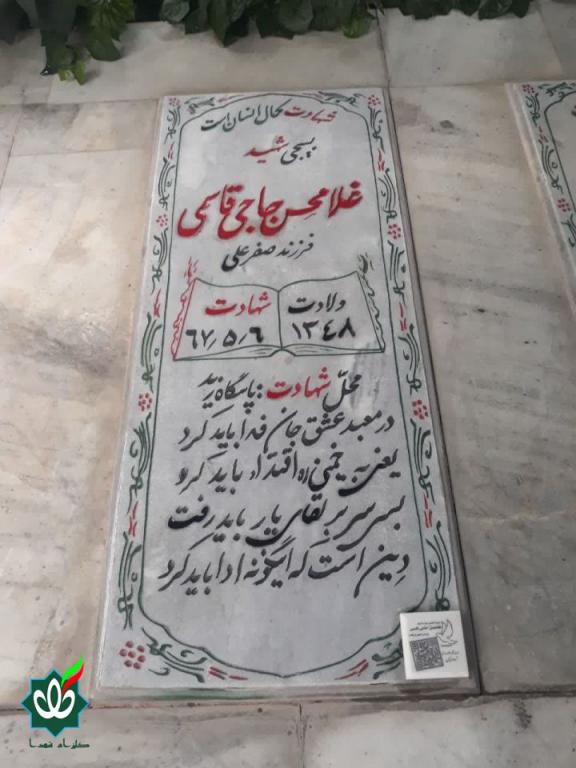 شهادت کمال انسان است
بسیجی شهید
غلامحسن حاجی قاسمی
فرزند صفرعلی
ولادت
۱۳۴۸
شهادت
۶۷٫۵٫۶
محل شهادت : پاسگاه زید
در معبد عشق جان فدا باید کرد
یعنی به خمینی اقتدا باید کرد
بس سر بر لقای یار باید رفت
دین است که اینگونه ادا باید کرد
گلزار شهدا